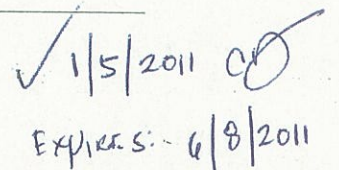 ✓ 1/5/2011 CD
Expires:- 6/8/2011